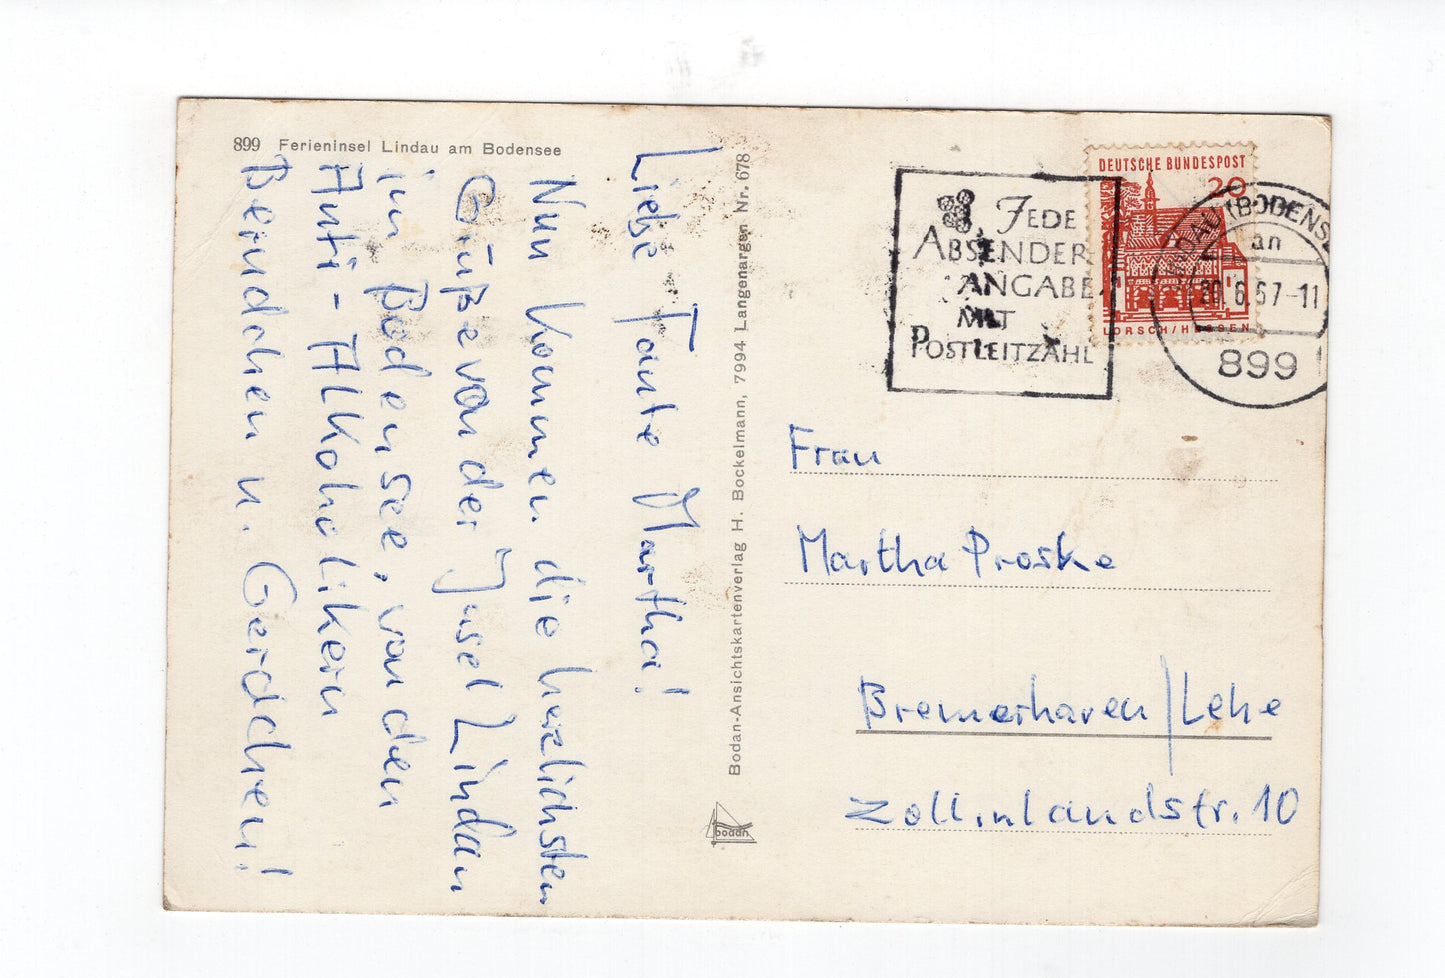 899 Ferieninsel Lindau am Bodensee
Liebe Tante Martha!
Nun kommen die herzlichsten
Grüße von der Insel Lindau
im Bodensee, von den
Anti-Alkoholikern
Berndchen u. Gerdchen!
Bodan-Ansichtskartenverlag H. Bockelmann, 7994 Langenargen Nr. 678
bodan
JEDE
ABSENDER
ANGABE
MIT
POSTLEITZAHL
DEUTSCHE BUNDESPOST
20
LORSCH/HESSEN
LINDAU (BODENSEE)
an
6.67-11
899
Frau
Martha Proske
Bremerhaven/Lehe
Zollinlandstr. 10